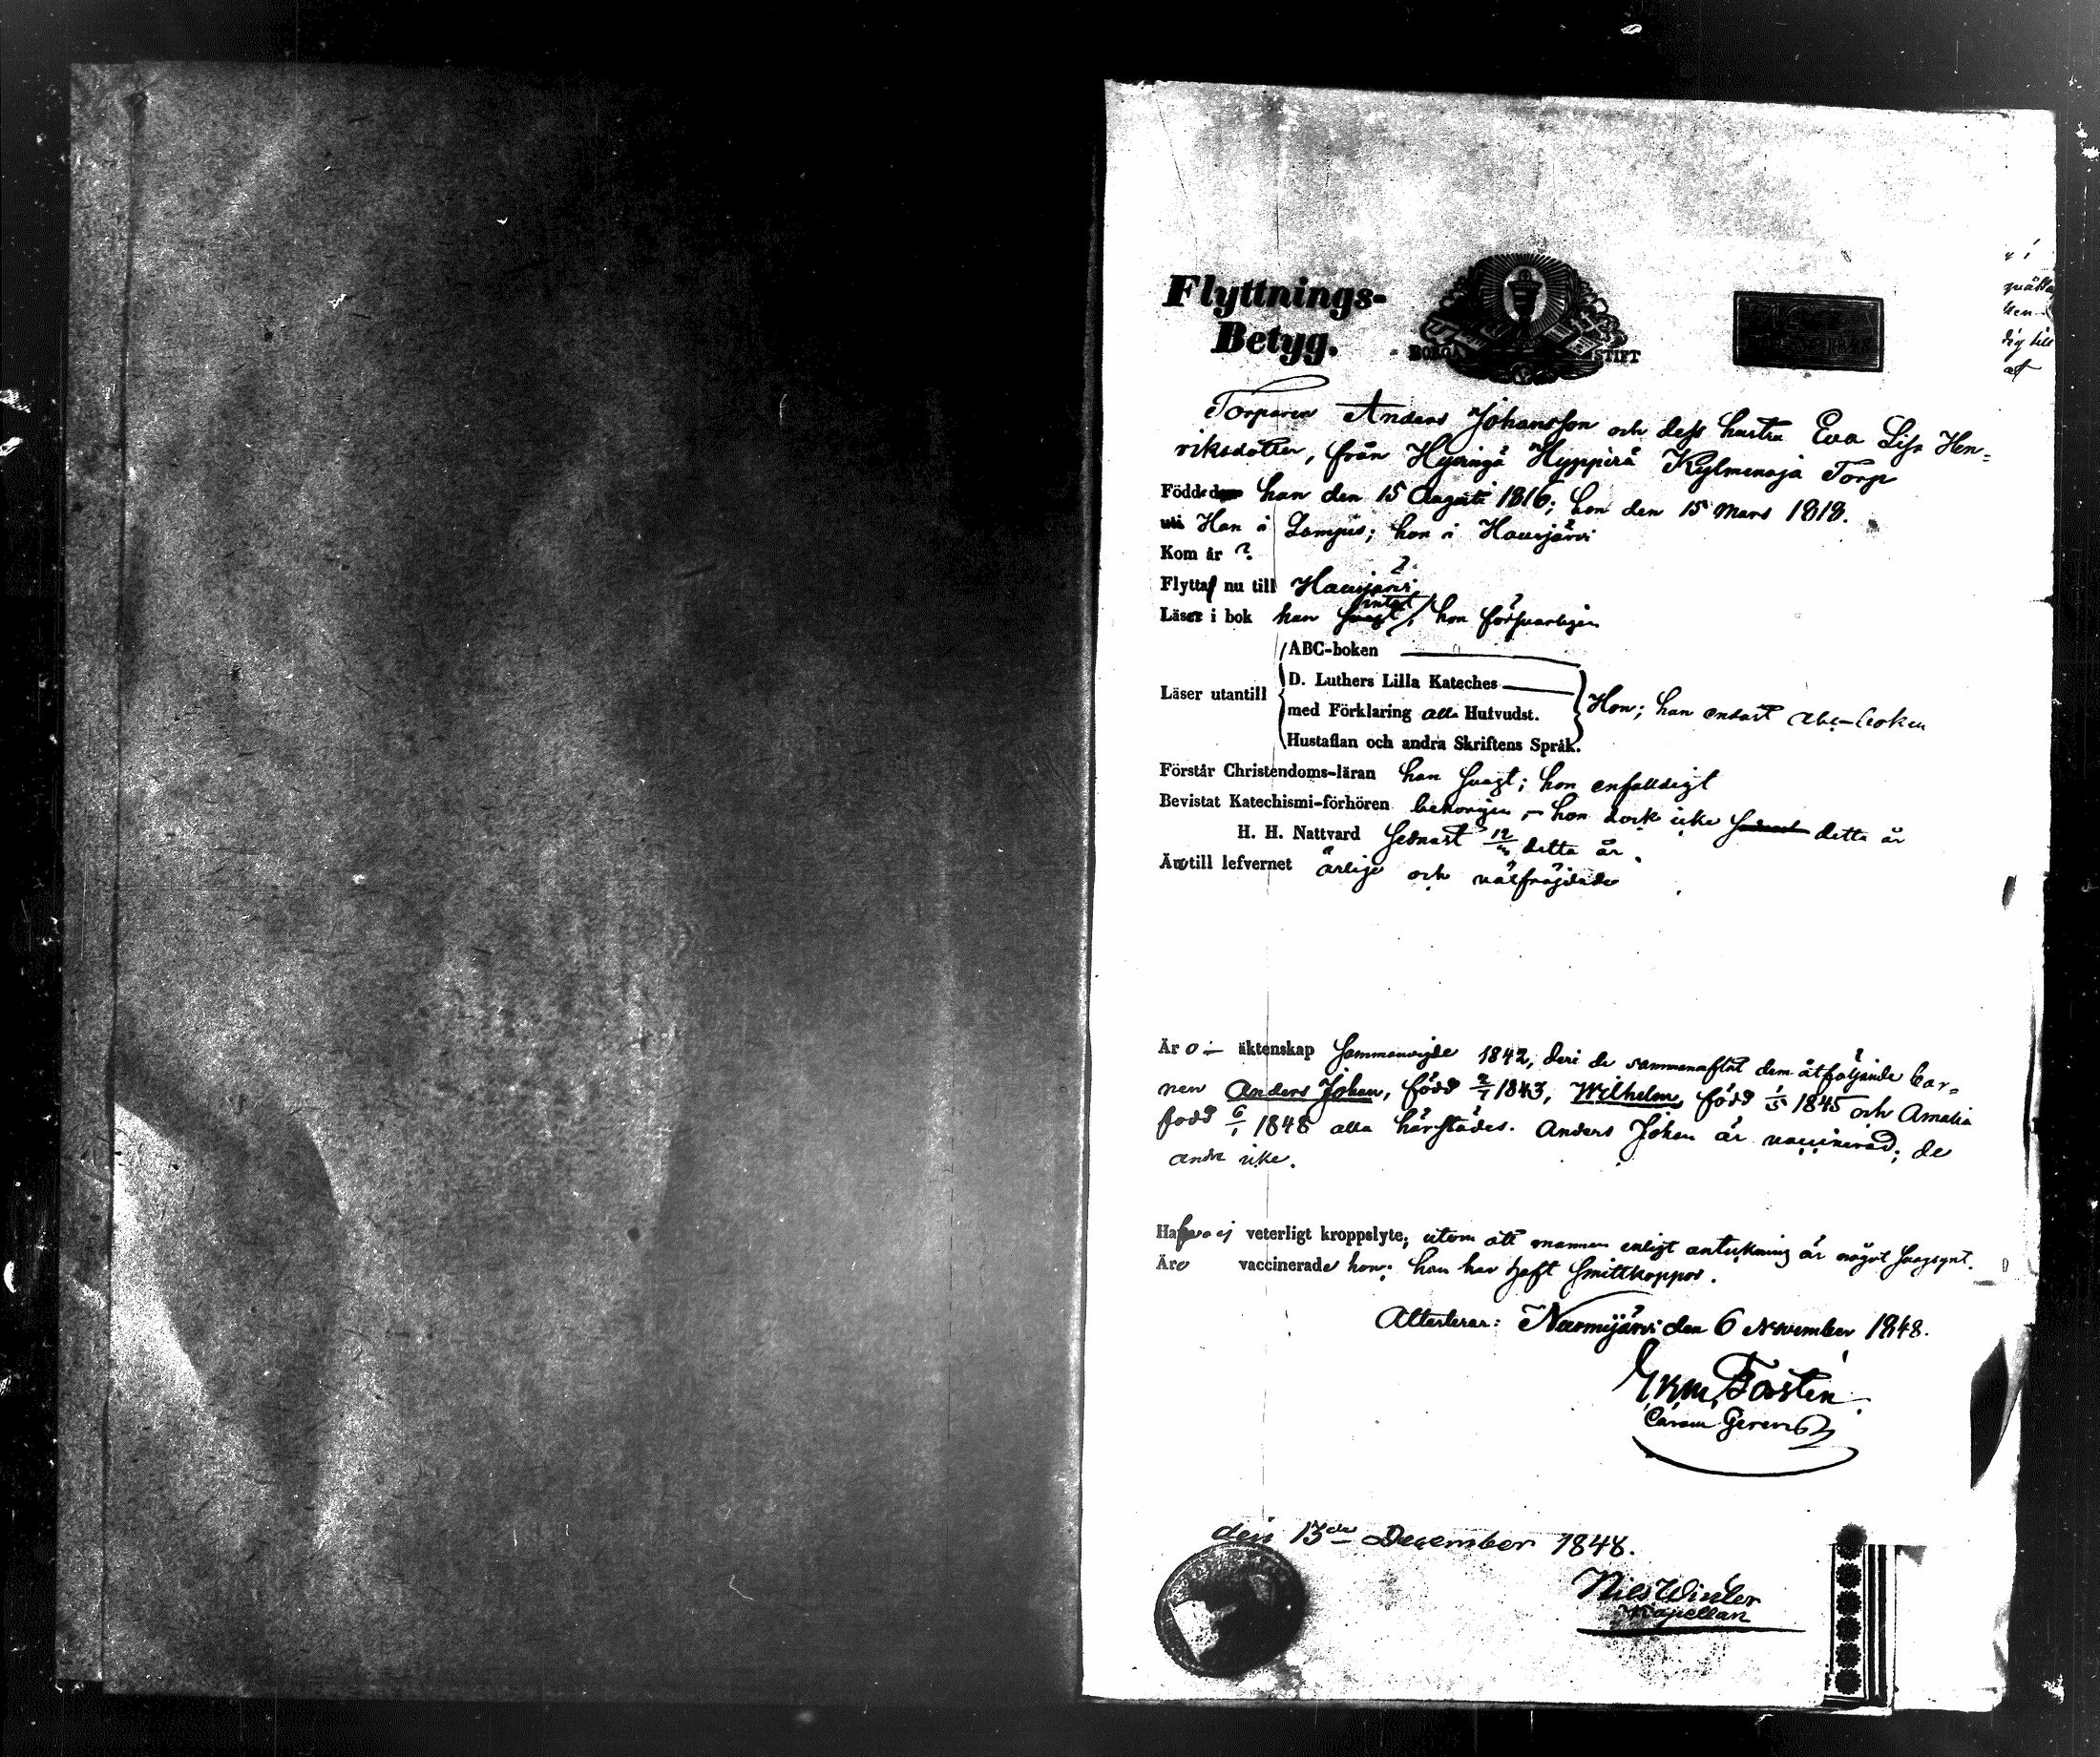 Flyttnings-
Betyg.
BORGÅ STIFT
Torparen Anders Johansson och dess hustru Eva Lisa Hen=
riksdotter, från Hyvingä Hyppirä Kylmenoja Torp
Födde han den 15 Augusti 1816; hon den 15 Mars 1818.
uti Han i Lampis; hon i Hausjärvi
Kom år ?
Flytta nu till Hausjärvi
Läser i bok han intet, hon försvarligen
ABC-boken
D. Luthers Lilla Kateches
Läser utantill
med Förklaring alla Hufvudst.
Hon; han endast abc-boken
Hustaflan och andra Skriftens Språk.
Förstår Christendoms-läran han svagt; hon enfalldigt
Bevistat Katechismi-förhören behörigen, hon dock icke detta år
H. H. Nattvard sednast detta år.
Äro till lefvernet ärlige och välfräjdade
Är o i äktenskap sammanvigde 1842, deri de sammanaflat dem åtföljande bar=
nen Anders Johan, född 2/7 1843, Wilhelm, född 1/5 1845 och Amalia
född 6/1 1848 alla härstädes. Anders Johan är vaccinerad; de
andre icke.
Hafva ej veterligt kroppslyte; utom att mannen enligt anteckning är något svagsynt.
Äro vaccinerade hon; han har haft Smittkoppor.
Attesterar: Nurmijärvi den 6 November 1848.
Forstén
den 13de December 1848.
Nils Winter
Kapellan